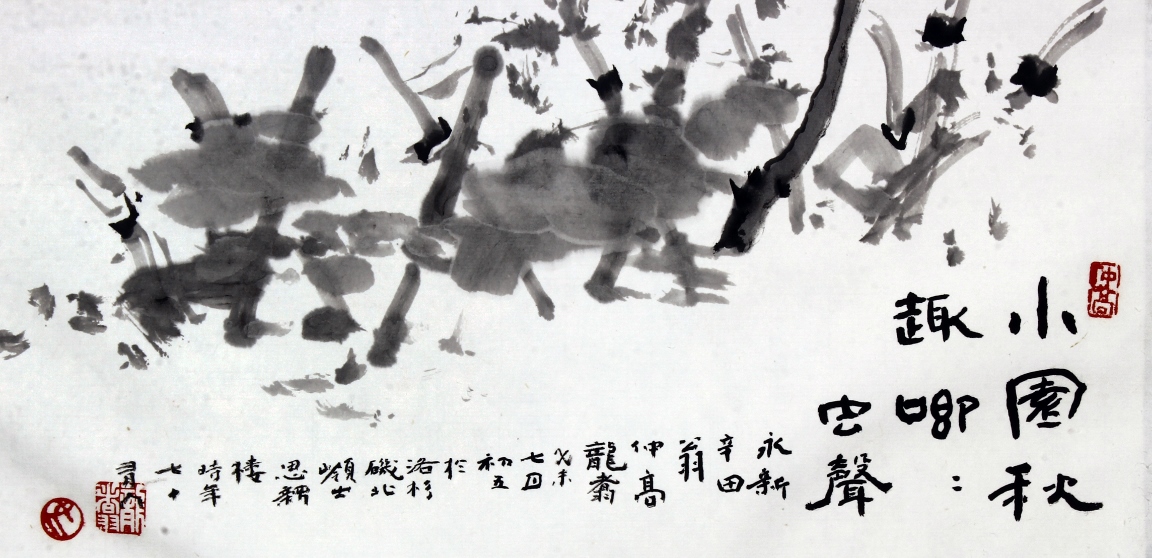 小園秋
趣唧：
虫聲
永新
辛田
翁
仲高
龍翥
癸未
七月
初五
於
洛杉
磯北
嶺士
思親
樓
時年
七十
仲高